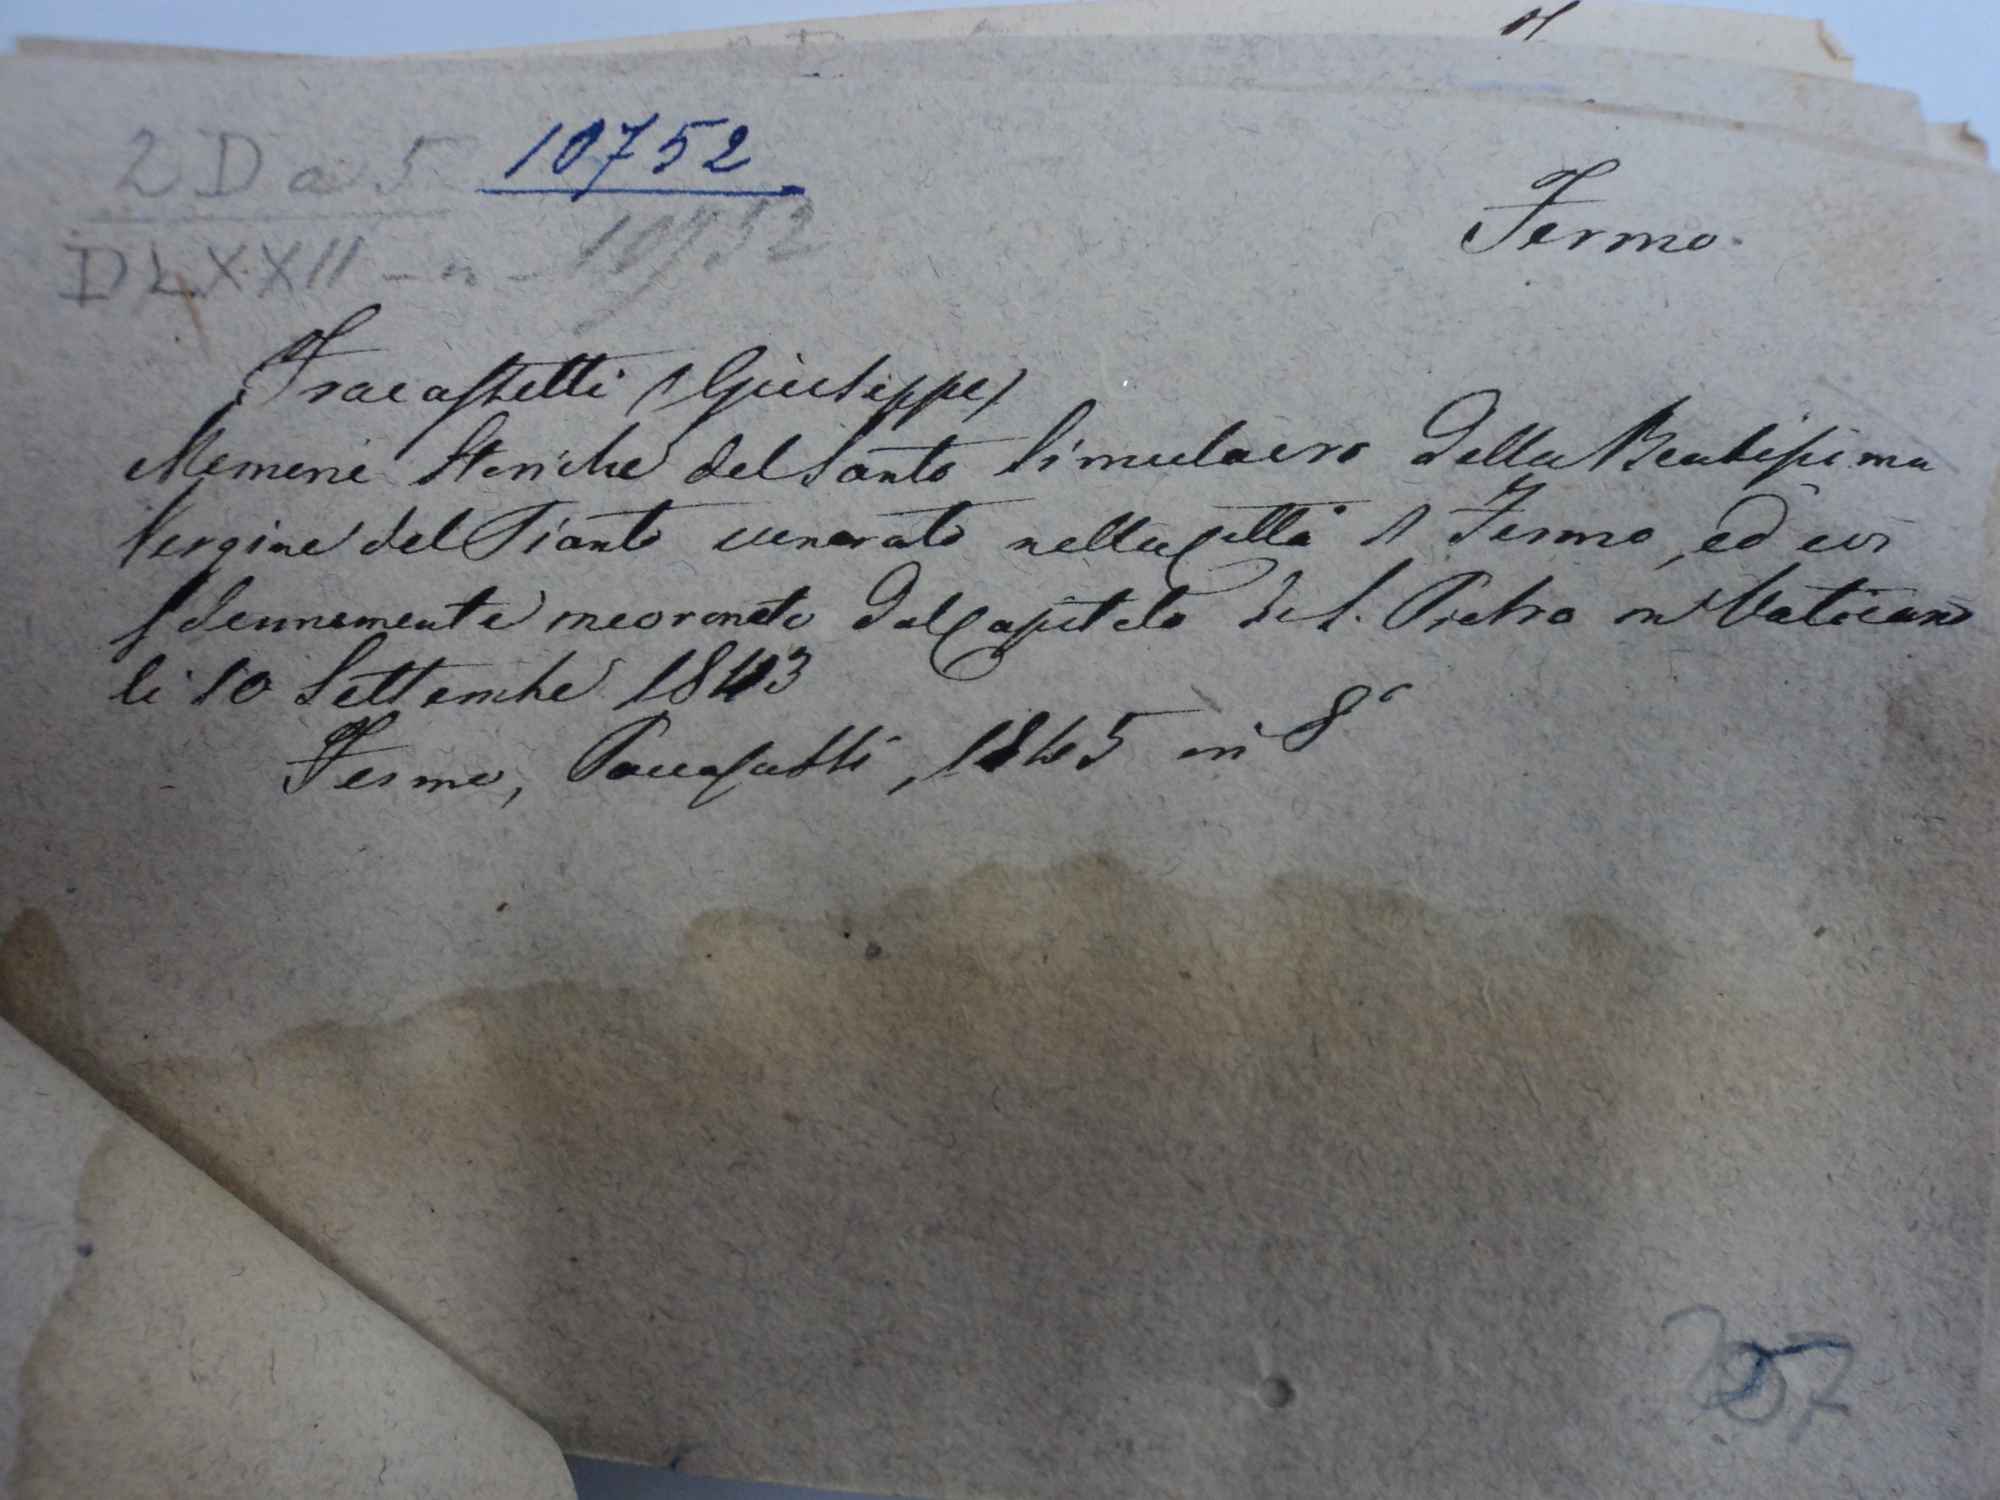 2 D a 5 10752
DLXXII - n - 10752
Fermo.
Fracassetti (Giuseppe)
Memorie Storiche del Santo Simulacro della Beatissima
Vergine del Pianto venerato nella Città di Fermo, ed ivi
solennemente incoronato dal Capitolo di S. Pietro in Vaticano
li 10 Settembre 1843
Fermo, Paccasassi, 1845 in 8°